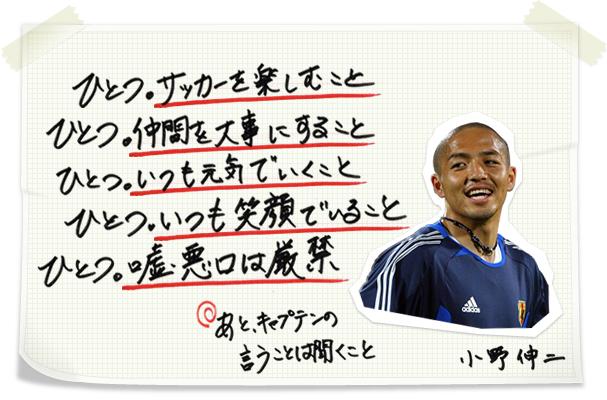 ひとつ。サッカーを楽しむこと
ひとつ。仲間を大事にすること
ひとつ。いつも元気でいくこと
ひとつ。いつも笑顔でいること
ひとつ。嘘・悪口は厳禁
あと、キャプテンの
言うことは聞くこと
adidas
小野伸二